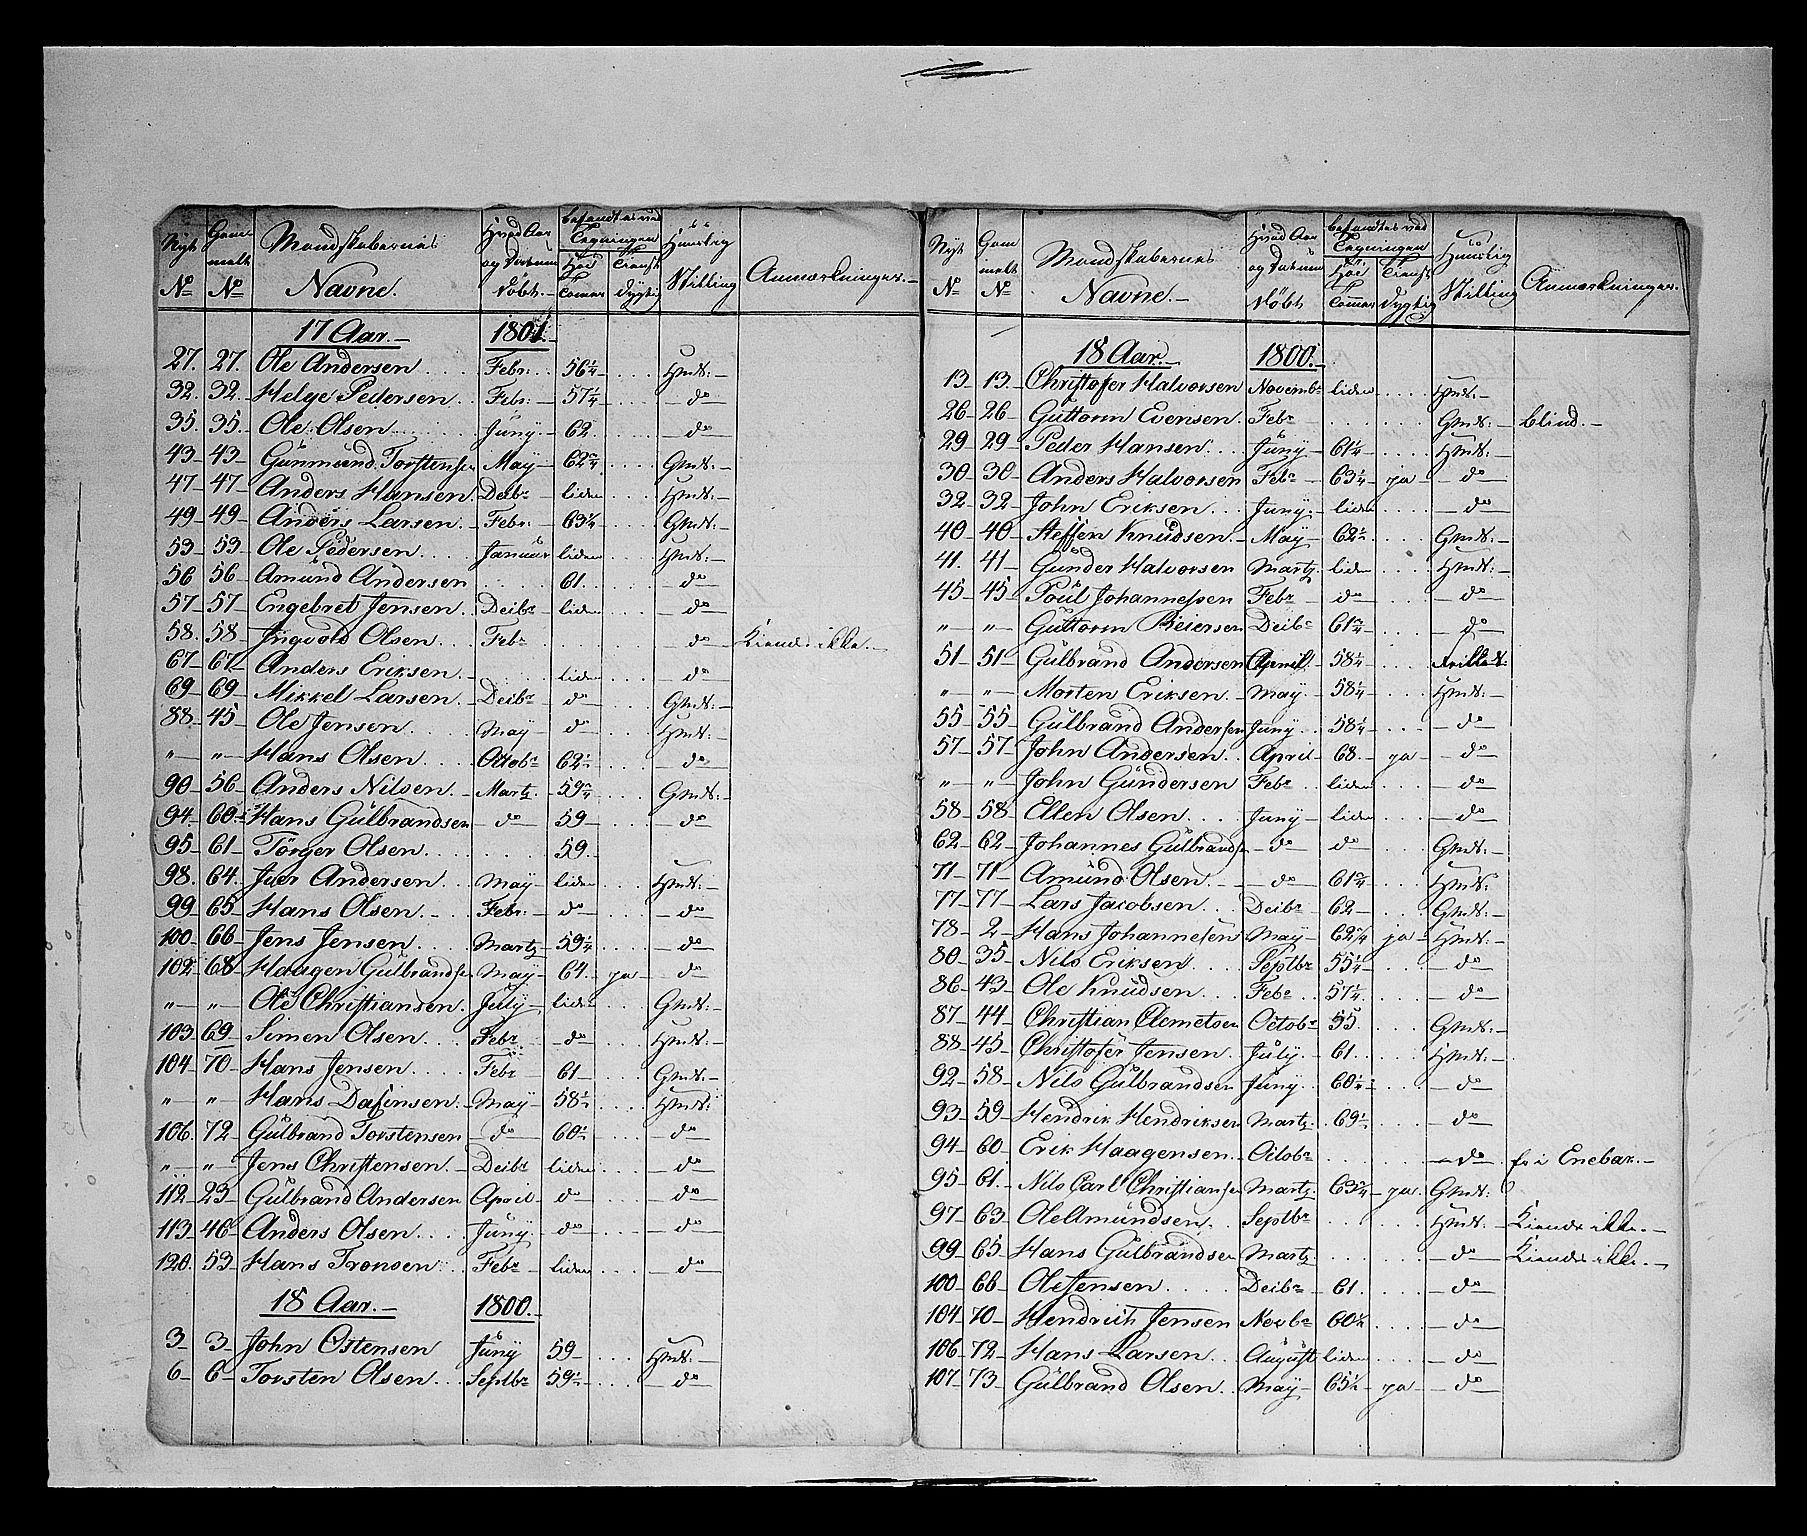 Nyt Gam Mandskabernes Hvad Aar befandtes ved Huuslig Anmærkninger.
melt og Datum Tegningen
No No Navne. döbt. Höi Tieneste Stilling
Tommer dygtig
17 Aar. 1801.
27. 27. Ole Andersen Febr: 56¼ Hmd:
32. 32. Helge Pedersen Febr: 57¼ do
35. 35. Ole Olsen Juny 62. do
43 43 Gunmund Torstensen May 62¾ Gmd:
47 47 Anders Hansen Decbr liden Hmd:
49 49 Anders Larsen Febr: 63¼ Gmd:
53 53 Ole Pedersen Januar liden Hmd:
56 56 Amund Andersen 61. do
57 57 Engebret Jensen Decbr liden do
58. 58 Ingvold Olsen Febr do Kiendes ikke.
67 67 Anders Eriksen liden do
69 69 Mikkel Larsen Decbr do Gmd:
88 45 Ole Jensen May do Hmd:
" " Hans Olsen Octobr 62½ do
90 56 Anders Nilsen Martz 59¾ Gmd:
94 60 Hans Gulbrandsen do 59 do
95 61 Törger Olsen 59.
98. 64. Iver Andersen May liden Hmd:
99 65 Hans Olsen Febr: do do
100 66 Jens Jensen Martz 59¼ do
102 68 Haagen Gulbrandsen May 64. ja do
" " Ole Christiansen July liden Gmd:
103 69 Simen Olsen Febr. do Hmd:
104 70 Hans Jensen Febr 61 Gmd:
" " Hans Dafinsen May 58½ Hmd:
106. 72 Gulbrand Torstensen do 60½ do
" " Jens Christensen Decbr liden do
112 23 Gulbrand Andersen April do do
113 46 Anders Olsen Juny. do do
120. 53 Hans Tronsen Febr liden do
18 Aar. 1800.
3 3 John Ostensen Juny 59 Hmd:
6 6 Torsten Olsen Septbr 59½ do
Nyt Gam Mandskabernes Hvad Aar befandtes ved Huuslig Anmærkninger.
melt og Datum Tegningen
No No Navne. döbt Höi Tieneste Stilling
Tommer dygtig
18 Aar. 1800.
13 13 Christofer Halvorsen Novembr liden Hmd:
26 26 Guttorm Evensen Febr Gmd: blind.
29 29 Peder Hansen Juny 61¼ Hmd:
30 30 Anders Halvorsen Febr 63¼ ja do
32 32 John Eriksen Juny. liden do
40 40 Steffen Knudsen May 62½ Gmd:
41. 41 Gunder Halvorsen Martz. liden Hmd:
45 45 Poul Johannessen Febr do do
" " Guttorm Reiersen Decbr 61¾ do
51 51 Gulbrand Andersen April 58¼
" " Morten Eriksen May 58¼ Hmd:
55 55 Gulbrand Andersen Juny 58¼ do
57 57 John Andersen April 68. ja do
" " John Gundersen Febr liden do
58 58 Ellen Olsen Juny liden do
62 62 Johannes Gulbrandsen do do Gmd:
71 71 Amund Olsen do 61¾ Hmd:
77 77 Lars Jacobsen Decbr 62 Gmd:
78 2 Hans Johannesen May 62¼ ja Hmd:
80 35 Nils Eriksen Septbr 55¼ do
86 43 Ole Knudsen Febr 57¼ do
87 44 Christian Clemetsen Octobr 55 Gmd:
88 45 Christofer Jensen July. 61. Hmd:
92 58 Nils Gulbrandsen Juny 60¼ do
93 59 Hendrik Hendriksen Martz. 69½ do
94 60 Erik Haagensen Octobr do er i Enebak.
95 61. Nils Carl Christiansen Martz 63¾ ja. Gmd:
97 63 Ole Amundsen Septbr Hmd: Kiendes ikke.
99 65 Hans Gulbrandsen Martz do Kiendes ikke.
100 66 Ole Jensen Decbr 61. do
104 70 Hendrich Jensen Novbr 60¼ do
106 72 Hans Larsen August liden do
107 73 Gulbrand Olsen May 65¼ ja do